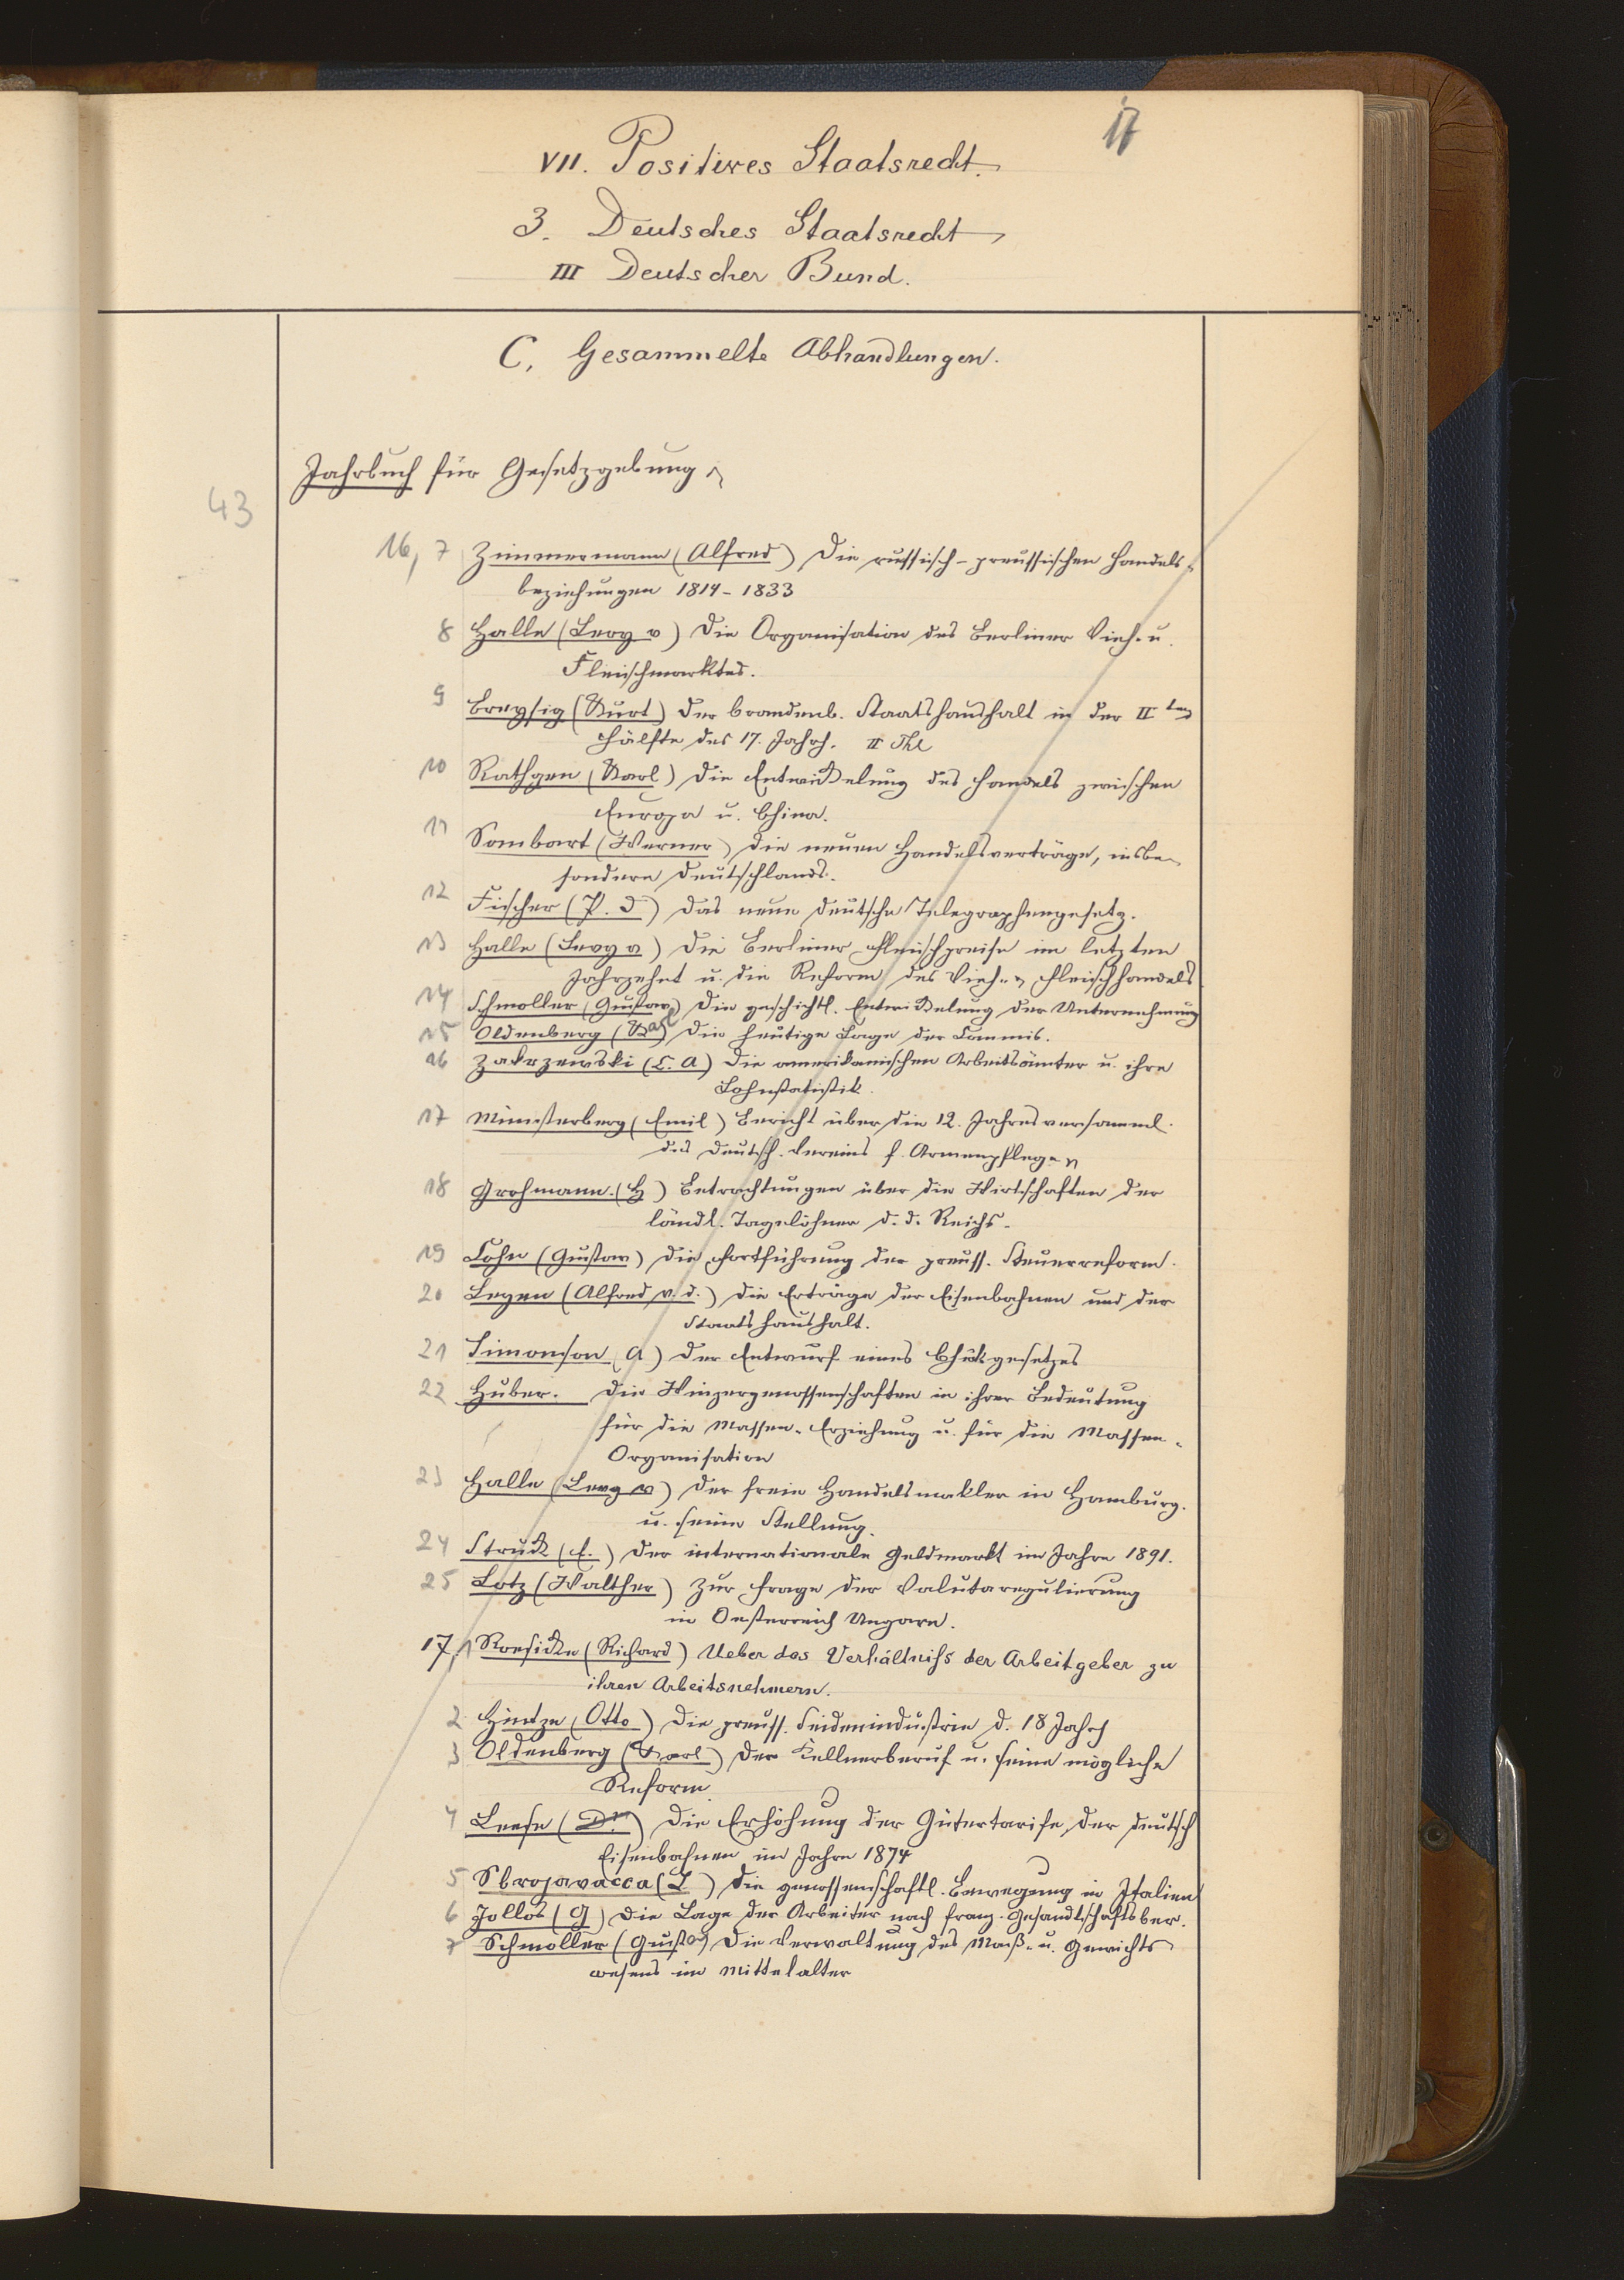 17
VII. Positives Staatsrecht.
3. Deutsches Staatsrecht
III Deutscher Bund.
C. Gesammelte Abhandlungen.
Jahrbuch für Gesetzgebung
43
16, 7 Zimmermann (Alfred) Die russisch-preussischen Handels-
beziehungen 1814-1833
8 Halle (Levy v) Die Organisation des Berliner Vieh- u.
Fleischmarktes.
9 Breysig (Kurt) Der brandenb. Staatshaushalt in der II ten
Hälfte des 17. Jahrh. II Thl
10 Rathgen (Karl) Die Entwickelung des Handels zwischen
Europa u. China.
11 Sombart (Werner) Die neuen Handelsverträge, insbe-
sondere Deutschlands.
12 Fischer (P. D) Das neue deutsche Telegraphengesetz.
13 Halle (Levy v) Die Berliner Fleischpreise im letzten
Jahrzehnt u. die Reform des Vieh- u Fleischhandels
14 Schmoller (Gustav) Die geschichtl. Entwickelung der Unternehmung
15 Oldenberg (Karl) Die heutige Lage der Commis.
16 Zakrzewski (C. A) Die amerikanischen Arbeitsämter u. ihre
Lohnstatistik.
17 Münsterberg (Emil) Bericht über die 12. Jahresversamml.
des Deutsch. Vereins f. Armenpflege
18 Grohmann. (H) Betrachtungen über die Wirtschaften der
ländl. Tagelöhner d. d. Reichs.
19 Cohn (Gustav) Die Fortführung der preuss. Steuerreform.
20 Leyen (Alfred v. d.) Die Erträge der Eisenbahnen und der
Staatshaushalt.
21 Simonson (A) Der Entwurf eines Checkgesetzes
22 Huber. Die Winzergenossenschaften in ihrer Bedeutung
für die Massen-Erziehung u. für die Massen-
Organisation
23 Halle (Levy v) Der freie Handelsmakler in Hamburg.
u. seine Stellung.
24 Struck (E.) Der internationale Geldmarkt im Jahre 1891.
25 Lotz (Walther) Zur Frage der Valutaregulierung
in Oesterreich Ungarn.
17, 1 Roesicke (Richard) Ueber das Verhältniss der Arbeitgeber zu
ihren Arbeitsnehmern.
2 Hintze (Otto) Die preuss. Seidenindustrie d. 18 Jahrh
3 Oldenberg (Karl) Der Kellnerberuf u. seine mögliche
Reform
4 Leese (Dr.) Die Erhöhung der Gütertarife der deutsch
Eisenbahnen im Jahre 1874
5 Sbrojavacca (L) Die genossenschaftl. Bewegung in Italien
6 Jollos (G) Die Lage der Arbeiter nach franz. Gesandtschaftsber.
7 Schmoller (Gustav) Die Verwaltung des Maß- u. Gewichts
wesens im Mittelalter